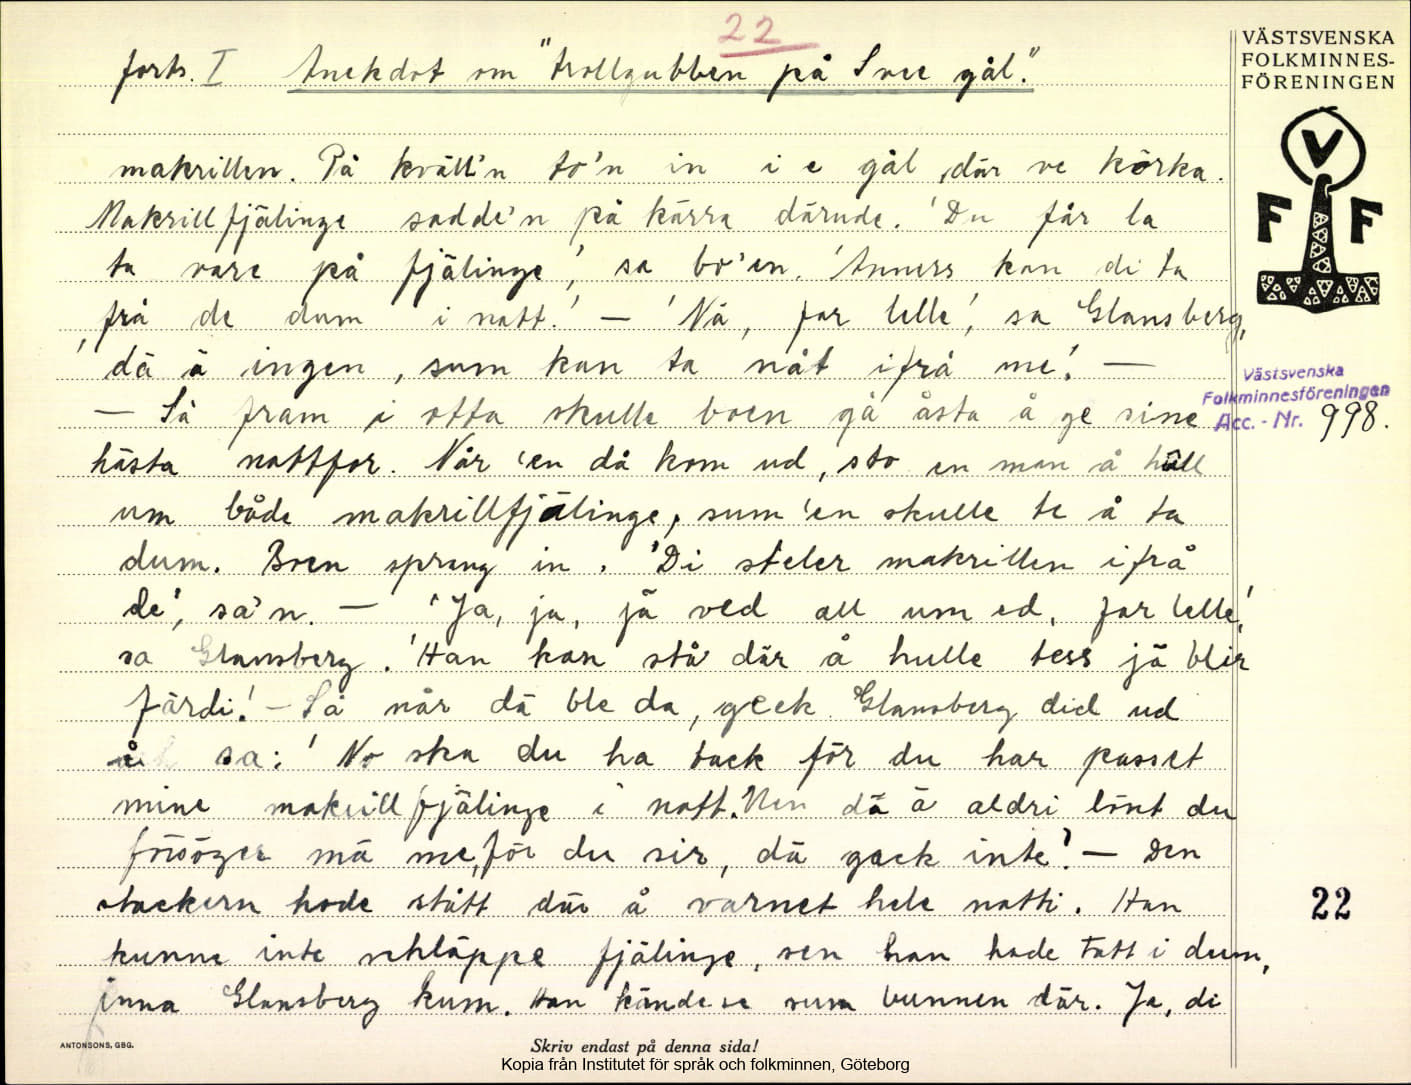 22
forts. I Anekdot om "trollgubben på Svee gål".
makrillen. På kväll'n to'n in i e gål, där ve körka.
Makrillfjälinge sadde'n på kärra därude. 'Du får la
ta vare på fjälinge', sa bo'en. 'Anners kan di ta
frå de dum i natt.' — 'Nä, far lelle', sa Glansberg,
'dä ä ingen, sum kan ta nåt ifrå me'. —
— Så fram i otta skulle boen gå åsta å ge sine
hästa nattfor. När 'en då kom ud, sto en man å hüll
um både makrillfjälinge, sum 'en skulle te å ta
dum. Boen sprang in. 'Di steler makrillen ifrå
de', sa'n. — 'Ja, ja, jä ved all um ed, far lelle',
sa Glansberg. 'Han kan stå där å hulle tess jä blir
färdi.' — Så når dä ble da, geck Glansberg did ud
å sa: 'No ska du ha tack för du har passet
mine makrillfjälinge i natt. Men dä ä aldri lönt du
försöger mä me, för du sir, dä gack inte'. — Den
stackern hade stått där å varnet hele natti. Han
kunne inte schläppe fjälinge, sen han hade tatt i dum,
inna Glansberg kum. Han kände se sum bunnen där. Ja, di
VÄSTSVENSKA
FOLKMINNES-
FÖRENINGEN
V
F F
Västsvenska
Folkminnesföreningen
Acc.-Nr. 998.
22
ANTONSONS, GBG.
Skriv endast på denna sida!
Kopia från Institutet för språk och folkminnen, Göteborg